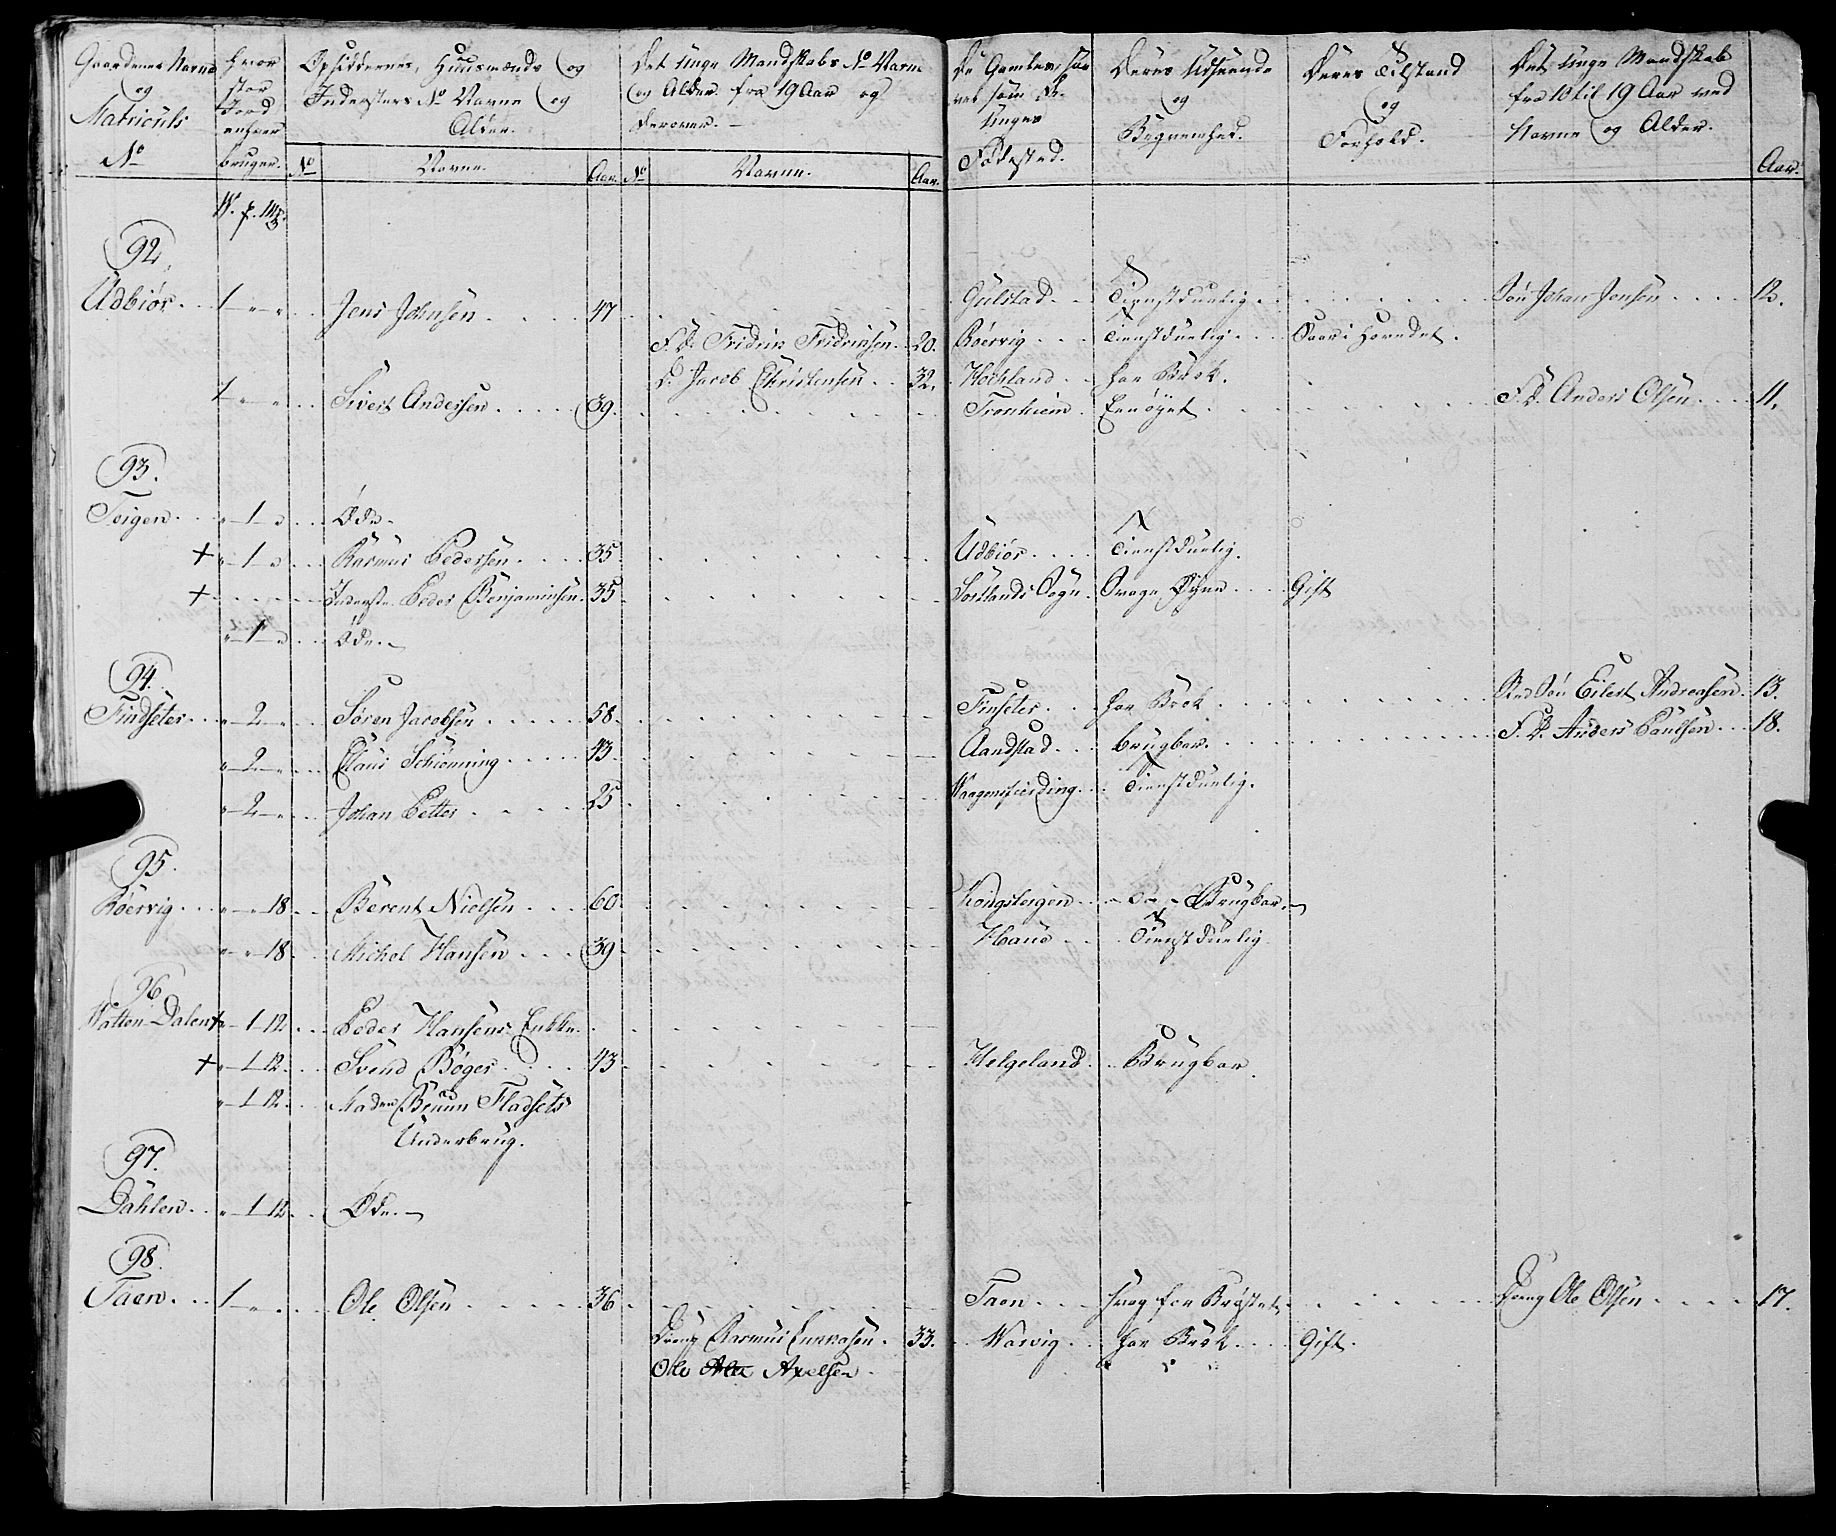 Gaardenes Navne
og
Matriculs
No
Hvor
stor
Jord
enhver
bruger.
W. p. mk
Opsiddernes, Huusmænds og
Indersters No Navne og
Alder.
No Navne. Aar.
Det unge Mandskabs No Navne
og Alder fra 19 Aar og
derover.
No Navne. Aar.
De Gamles, saa
vel som de
unges
Fødested.
Deres Udseende
og
Beqvemhed.
Deres Tilstand
og
Forhold.
Det unge Mandskab
fra 10 til 19 Aar ved
Navne og Alder.
Aar.
92.
Udbiør. 1 " " Jens Johnsen 47 Gulstad Tienstduelig Søn Johan Jensen 12.
F. D. Fridrik Fridriksen 20. Röervig Tienstduelig Saar i Hovedet.
D. Jacob Christensen 32. Hochland har Brok.
1 " " Sivert Andersen 39. Tronhiem Eenøyet F. D. Anders Olsen 11.
93.
Teigen " 1 " Øde
+ " 1 " Rasmus Pedersen 35. Udbiør Tienstduelig.
+ Inderste Peder Benjaminsen 35. Sortlands Sogn Svage Øyne Gift
" 1 " Øde.
94.
Findseter " 2 " Søren Jacobsen 58. Finseter har Brok Sted Søn Eilert Andreasen 13.
" 2 " Claus Schiønning 43. Aandstad brugbar. F. D. Anders Paulsen 18.
" 2 " Johan Petter 25 Waagensfierding Tienstduelig.
95.
Röervig " " 18 Berent Nielsen 60. Kongsbergen Do Brugbar.
" " 18 Michel Hansen 39. Hanø Tienstduelig
96.
Watten Dalen + " 1 12 Peder Hansens Enkke.
+ " 1 12 Svend Bøger 43 Helgeland Brugbar.
" 1 12 Madme Bruun Fladsets
Underbrug.
97.
Dahlen " 1 12 Øde.
98.
Taen 1 " " Ole Olsen 36 Taen svag for Brøstet Dreng Ole Olsen 17.
Dreng Rasmus 33. Warvig har Brok Gift.
Ole Axelsen